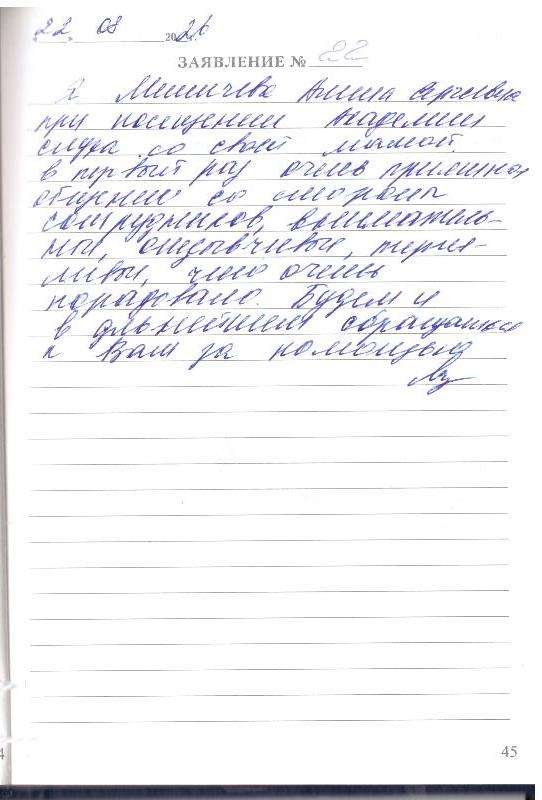 22. 08 2026
ЗАЯВЛЕНИЕ № 22
Я Анна Сергеевна
при посещении Академии
слуха со своей мамой
в первый раз очень приятное
общение со стороны
сотрудников, вниматель-
ны, отзывчивы, терпе-
ливы, что очень
порадовало. Будем и
в дльнейшем обращаться
к Вам за помощью
45